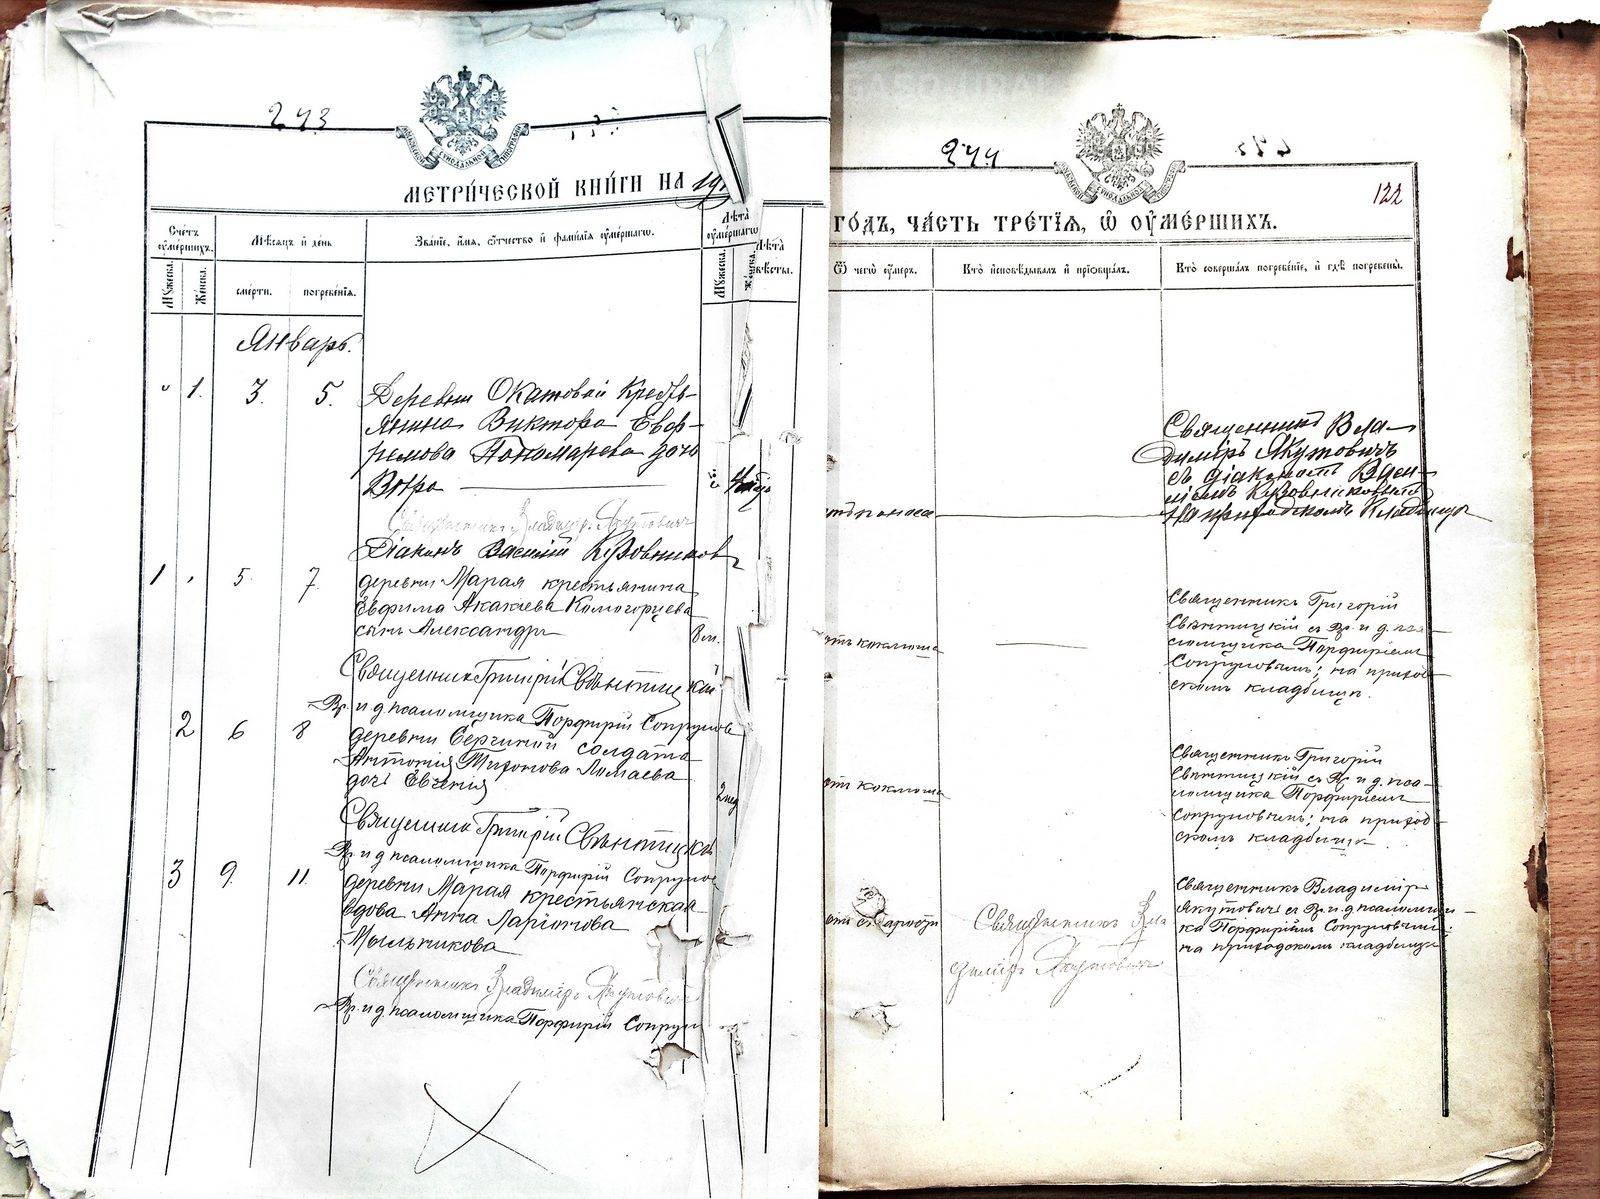 243
МЕТРИ́ЧЕСКОЙ КНИ́ГИ НА 19
Сче́тъ ᲂу҆ме́ршихъ.
Мѣ́сяцъ и҆ де́нь
Зва́нїе, и҆́мѧ, ѻ҆́тчество и҆ фами́лїѧ ᲂу҆ме́ршагѡ.
Лѣ́та ᲂу҆ме́ршагѡ
Лѣ́та
Му́жеска.
Же́нска.
сме́рти.
погребе́нїѧ.
Му́жеска.
Же́нска.
Январь.
" 1. 3. 5.
Деревни Окатовой Кресть-
янина Виктора Евф-
ремова Пономарева дочь
Священник Владимір Якутович
Діаконъ Василій Кузовников
1 " 5. 7.
деревни Марая крестьянина
Евфима Акакіева Комогорцева
сынъ Александръ
8 м.
Священник Григорій Свентицкій
Вр. и д псаломщика Порфирій Сопрунов
2 6 8
солдата
Антонія Тихонова Ломаева
дочь Евгенія
2 нед
Священник Григорій Свентицкій
Вр. и д псаломщика Порфирій Сопрунов
3 9. 11.
деревни Марая крестьянская
вдова Анна Ларіонова
Мыльникова
Священник Владимір Якутович
Вр. и д. псаломщика Порфирій Сопрун
244
122
ГОДЪ, ЧА́СТЬ ТРЕ́ТЇѦ, Ѡ҆ ОУ҆МЕ́РШИХЪ.
Ѿ чегѡ̀ ᲂу҆́меръ.
Кто̀ и҆сповѣ́дывалъ и҆ прїѡбща́лъ.
Кто̀ соверша́лъ погребе́нїе, и҆ гдѣ̀ погребены̀.
Священникъ Вла-
димиръ Якутовичъ
съ діакономъ Васи-
ліемъ Кузовниковымъ
на приходскомъ кладбищѣ
отъ коклюша
Священникъ Григорій
Свентицкій с Вр. и д. пса-
ломщика Порфиріемъ
Сопруновымъ; на приход-
скомъ кладбищѣ.
отъ коклюша
Священникъ Григорій
Свентицкій с Вр. и д. пса-
ломщика Порфиріемъ
Сопруновымъ; на приход-
скомъ кладбищѣ.
отъ старости
Священникъ Вла
димір Якутовичъ
Священникъ Владимір
Якутовичъ с Вр. и д. псаломщи-
ка Порфиріемъ Сопруновымъ;
на приходскомъ кладбищѣ